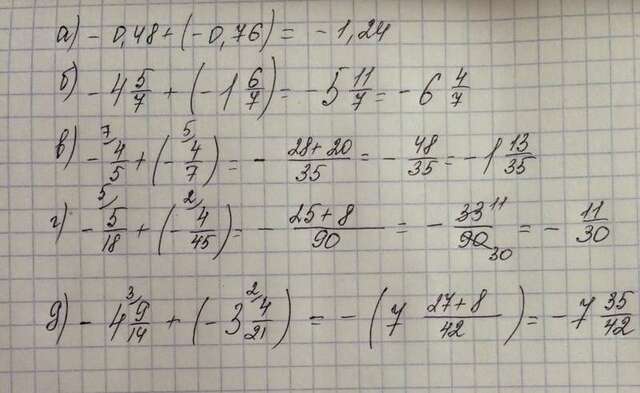 а) - 0,48 + (- 0,76) = - 1,24
б) - 4 5/7 + (- 1 6/7) = - 5 11/7 = - 6 4/7
в) - 7/ 4/5 + (- 5/ 4/7) = - (28 + 20)/35 = - 48/35 = - 1 13/35
г) - 5/ 5/18 + (- 2/ 4/45) = - (25 + 8)/90 = - 33 11/90 30 = - 11/30
д) - 4 3/ 9/14 + (- 3 2/ 4/21) = - (7 (27 + 8)/42) = - 7 35/42